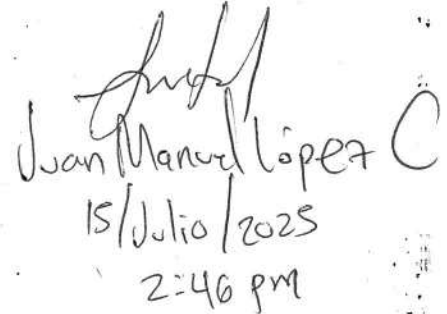 Juan Manuel López C
15/Julio/2025
2:46 pm